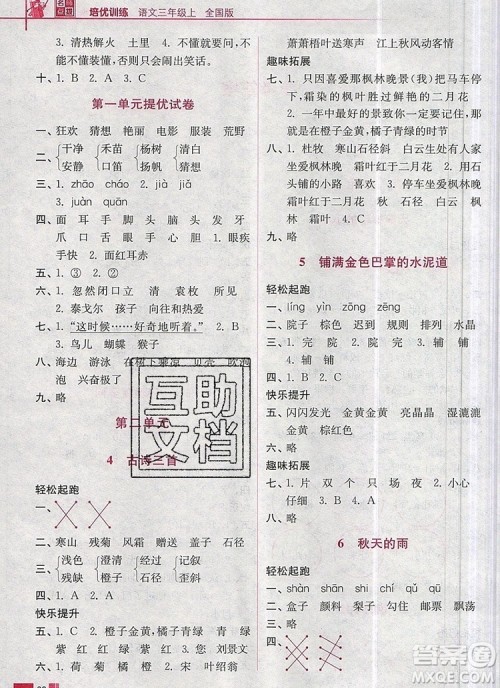 名师点拨
培优训练 语文三年级上 全国版
3. 清热解火 土里 2. 不可能,不能不
能不懂装懂,否则就会闹笑话。
十、1. C 2. A 3. C
第一单元提优试卷
一、狂欢 猜想 艳丽 电影 服装 荒野
二、干净 禾苗 杨树 清白
安静 口笛 扬帆 猜想
三、1. zhāo cháo 2. jià jiǎ
3. juàn quān
四、面 耳 手 脚 头 脑 头 牙
爪 口 舌 眼 手 心 1. 眼疾
手快 2. 面红耳赤
五、① ③ ② ① ③ ②
六、1. 忽然闭口立 清 袁枚 黄
2. 泰戈尔 孩子 向往和热爱
七、1. “这时候……好奇地听着。”
3. 鸟儿 蝴蝶 猴子
八、海边 游泳 在树下乘凉 贝壳 吹泡
泡 兴奋极了
九、略
第二单元
4 古诗三首
轻松起跑
一、
二、寒山 残菊 风霜 赠送 盖子 石径
三、浅色 盖子 石径 记叙
残缺 橙子 经过 歪斜
快乐提升
五、1. C 2. A 绿 橙 黄 青 绿
紫 红 红 绿 紫 紫 红 红
六、1. 荷 菊 橘 橙 2. 宋 叶绍翁
萧萧梧叶送寒声 江上秋风动客情
趣味拓展
七、1. 只因喜爱那枫林晚景(我)把马车停
下, 霜染的枫叶胜过二月花
2. 一年最好的景致你一定要记住,那就
是在橙子金黄、橘子青绿的时节
八、1. 杜牧 寒山石径斜 白云生处有人家
停车坐爱枫林晚 霜叶红于二月花
石头铺的小路 喜欢 3. 停车坐爱枫林
晚 霜叶 4. 石径 秋 白云 枫林
霜叶
九、略
5 铺满金色巴掌的水泥道
轻松起跑
一、líng yìn zōng zēng
二、院子 棕色 迟到 规则 排列 水晶
三、1. 完 院 完 院 2. 辅 铺 辅 铺
四、1. A 2. C
快乐提升
五、闪闪发光 金黄金黄 亮晶晶 湿漉漉
六、1. C 2. A
趣味拓展
七、1. 片 双 个 只 2. C 3. 小心
仔细 4. B
八、略
6 秋天的雨
轻松起跑
一、shàn shān shí chí qǔ qū
二、盒子 颜料 梨子 勾住 邮票 飘荡
三、
四、